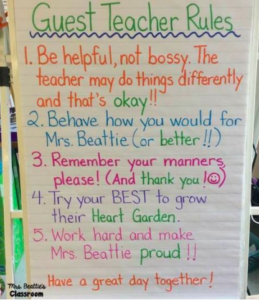 Guest Teacher Rules
1. Be helpful, not bossy. The
teacher may do things differently
and that's okay!!
2. Behave how you would for
Mrs. Beattie (or better!!)
3. Remember your manners,
please! (And thank you!☺)
4. Try your BEST to grow
their Heart Garden.
5. Work hard and make
Mrs. Beattie proud!!
Have a great day together!
Mrs. Beattie's
Classroom